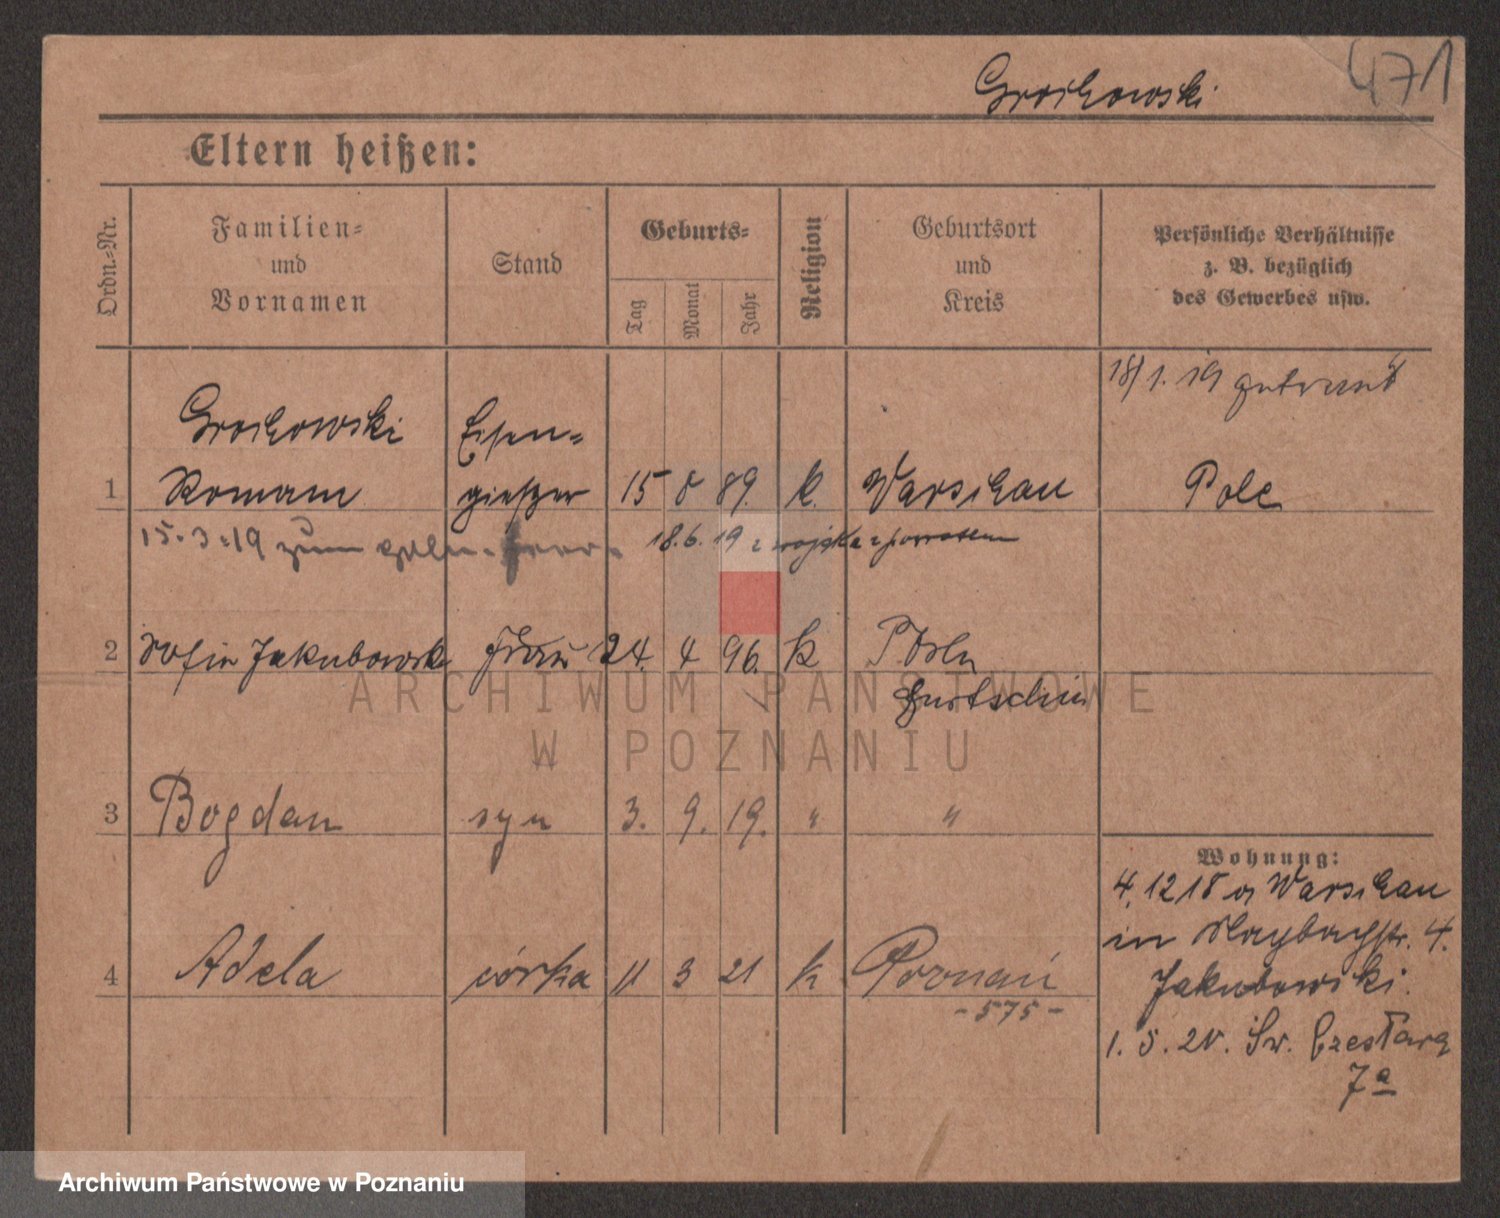 471
Grochowski
Eltern heißen:
Ordn.-Nr.
Familien-
und
Vornamen
Stand
Geburts-
Tag
Monat
Jahr
Religion
Geburtsort
und
Kreis
Persönliche Verhältnisse
z. B. bezüglich
des Gewerbes usw.
18/1. 19 getraut
Grochowski Eisen-
1 Roman gießer 15 8 89. k. Warschau Pole
15.3.19 zum 18.6.19 z wojska
2 Sofia Jakubowsk Frau 24. 4 96. k Posen
Gurtschin
ARCHIWUM PAŃSTWOWE
W POZNANIU
3 Bogdan syn 3. 9. 19. " "
Wohnung:
4.12 18 a Warschau
in Maybachstr. 4.
4 Adela córka 11 3 21 k Poznań
Jakubowski.
- 575 -
1. 5. 20. Św. Czesława
7a
Archiwum Państwowe w Poznaniu